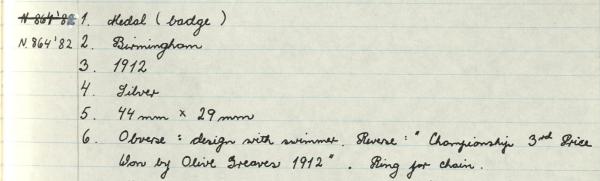 N 864'82 1. Medal (badge)
N. 864'82 2. Birmingham
3. 1912
4. Silver
5. 44 mm × 29 mm
6. Obverse : design with swimmer. Reverse : " Championship 3rd Price
Won by Olive Greaves 1912 " . Ring for chain.